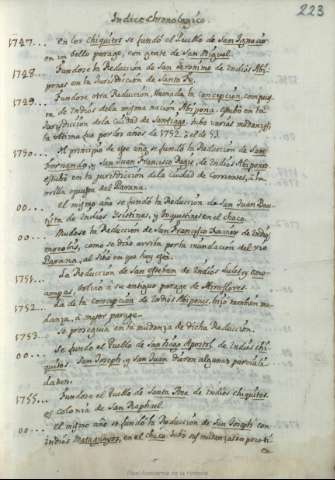 223
Indice Chronologico.
1747... En los chiquitos se fundó el Pueblo de San Ignacio
en un bello parage, con gente de San Miguel.
1748... Fundose la Reducción de San Geronimo de Indios Abi-
ponas en la Jurisdiccion de Santa Fe.
1749... Fundose otra Reducion, llamada la Concepcion, compues-
ta de Indios de la misma nacion Abipona. Estubo en la
Jurisdiccion de la ciudad de Santiago. tubo varias mudanzas,
la ultima fue por los años de 1752. y el de 53.
1750... Al principio de este año se fundó la Reduccion de San
Fernando, y San Juan Francisco Regis, de Indios Abipones.
estubo en la jurisdiccion de la Ciudad de Corrientes, a la
orilla opuesta del Paraná.
00... El mismo año se fundó la Reducion de San Juan Bau-
tista de Indios Isistines, y Toquistines en el chaco.
00... Mudose la Reduccion de San Francisco Xavier de Indios
mocobis, como se dijo arriba por la inundacion del rio
Paraná, al sitio en que hoy esta.
1751... La Reduccion de San Esteban de Indios Lules, y
volvió a su antiguo parage de Miraflores.
1752... La de la Concepcion de Indios Abipones, hizo tambien mu-
danza, a mejor parage.
1753... Se prosiguió en la mudanza de dicha Reduccion.
00... Se fundó el Pueblo de Santiago Apostol, de Indios chi-
quitos. San Joseph, y San Juan dieron algunas parciali-
dades.
1755... Fundose el Pueblo de Santa Ana de Indios chiquitos.
es colonia de San Raphael.
00... El mismo año se fundó la Reducion de San Joseph con
Indios Mataguayos, en el chaco. tubo
Real Academia de la Historia